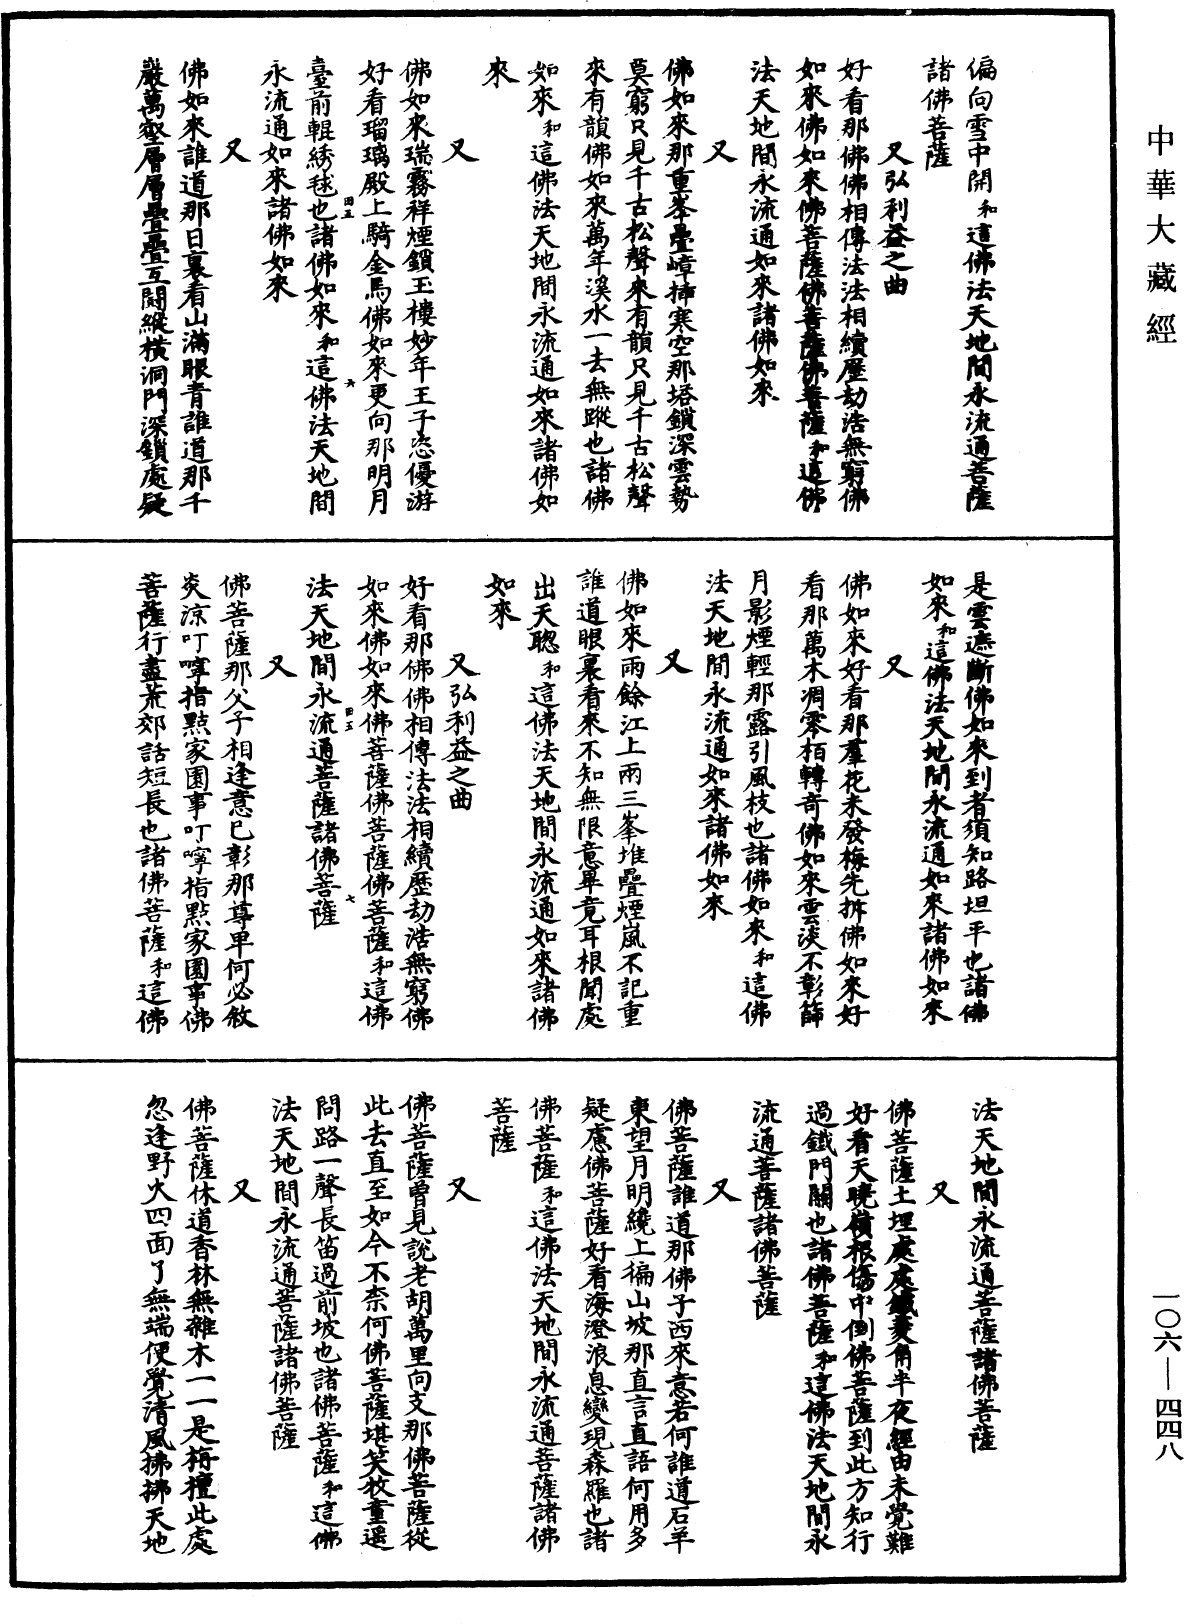 中華大藏經
偏向雪中開和這佛法天地間永流通菩薩
諸佛菩薩
又弘利益之曲
好看那佛佛相傳法法相續歷劫浩無窮佛
如來佛如來佛菩薩佛菩薩佛菩薩和這佛
法天地間永流通如來諸佛如來
又
佛如來那重峯疊嶂揷寒空那塔鎖深雲勢
莫窮只見千古松聲來有韻只見千古松聲
來有韻佛如來萬年溪水一去無蹤也諸佛
如來和這佛法天地間永流通如來諸佛如
來
又
佛如來瑞霧祥煙鎖玉樓妙年王子恣優游
好看瑠璃殿上騎金馬佛如來更向那明月
臺前輥綉毬也諸佛如來和這佛法天地間
永流通如來諸佛如來
又
佛如來誰道那日裏看山滿眼青誰道那千
巖萬壑層層疊疊互鬪縱橫洞門深鎖處疑
是雲遮斷佛如來到者須知路坦平也諸佛
如來和這佛法天地間永流通如來諸佛如來
又
佛如來好看那羣花未發梅先拆佛如來好
看那萬木凋零栢轉奇佛如來雲淡不彰篩
月影煙輕那露引風枝也諸佛如來和這佛
法天地間永流通如來諸佛如來
又
佛如來雨餘江上兩三峯堆疊煙嵐不記重
誰道眼裏看來不知無限意畢竟耳根聞處
出天聰和這佛法天地間永流通如來諸佛
如來
又弘利益之曲
好看那佛佛相傳法法相續歷劫浩無窮佛
如來佛如來佛菩薩佛菩薩佛菩薩和這佛
法天地間永流通菩薩諸佛菩薩
又
佛菩薩那父子相逢意已彰那尊卑何必敘
炎涼叮嚀指點家園事叮嚀指點家園事佛
菩薩行盡荒郊話短長也諸佛菩薩和這佛
法天地間永流通菩薩諸佛菩薩
又
佛菩薩土埋處處鐵菱角半夜經由未覺難
好看天曉橫根傷中倒佛菩薩到此方知行
過鐵門關也諸佛菩薩和這佛法天地間永
流通菩薩諸佛菩薩
又
佛菩薩誰道那佛子西來意若何誰道石羊
東望月明繞上徧山坡那直言直語何用多
疑慮佛菩薩好看海澄浪息變現森羅也諸
佛菩薩和這佛法天地間永流通菩薩諸佛
菩薩
又
佛菩薩曾見說老胡萬里向支那佛菩薩從
此去直至如今不柰何佛菩薩堪笑牧童遥
問路一聲長笛過前坡也諸佛菩薩和這佛
法天地間永流通菩薩諸佛菩薩
又
佛菩薩休道香林無雜木一一是栴檀此處
忽逢野火四面了無端便覺清風拂拂天地
一〇六—四四八